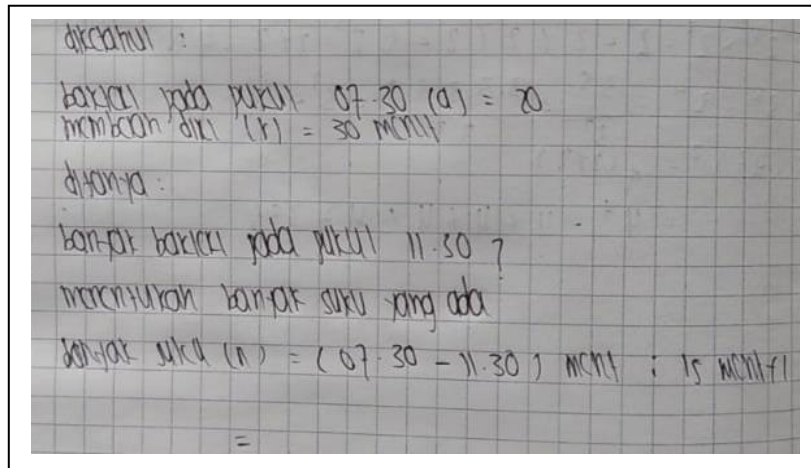 diketahui :
bakteri pada pukul 07.30 (a) = 20
membelah diri (r) = 30 menit
ditanya :
banyak bakteri pada pukul 11.30 ?
menentukan banyak suku yang ada
banyak suku (n) = (07.30 - 11.30) menit : 15 menit + 1
=